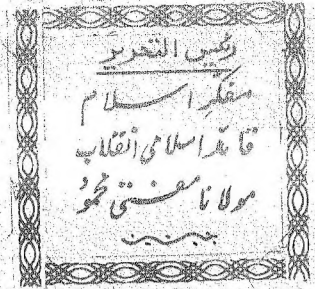 رئیس التحریر
مفکرِ اسلام
قائد اسلامی انقلاب
مولانا مفتی محمود